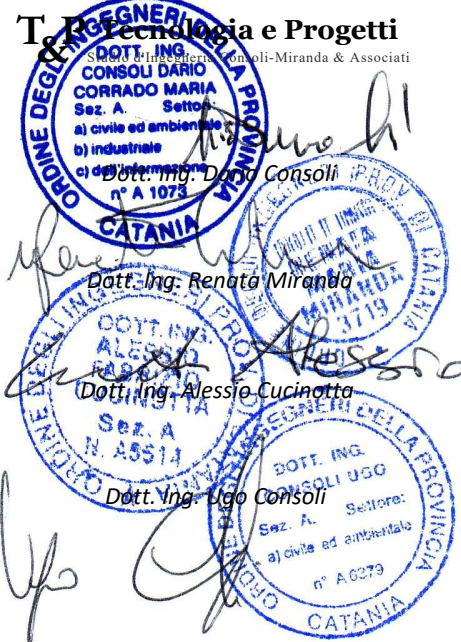 T&P Tecnologia e Progetti
Studio d'Ingegneria Consoli-Miranda & Associati
ORDINE DEGLI INGEGNERI DELLA PROVINCIA
DOTT. ING.
CONSOLI DARIO
CORRADO MARIA
Sez. A. Settore:
a) civile ed ambientale
b) industriale
c) dell'informazione
n° A 1073
CATANIA
Dott. Ing. Dario Consoli
PROV. DI CATANIA
MIRANDA
3719
Dott. Ing. Renata Miranda
ORDINE DEGLI INGEGNERI
DOTT. ING.
ALESSIO
CUCINOTTA
Sez. A
N. A5514
Alessio
Dott. Ing. Alessio Cucinotta
Dott. Ing. Ugo Consoli
INGEGNERI DELLA PROVINCIA
DOTT. ING.
CONSOLI UGO
Sez. A. Settore:
a) civile ed ambientale
n° A 6379
CATANIA
Ugo